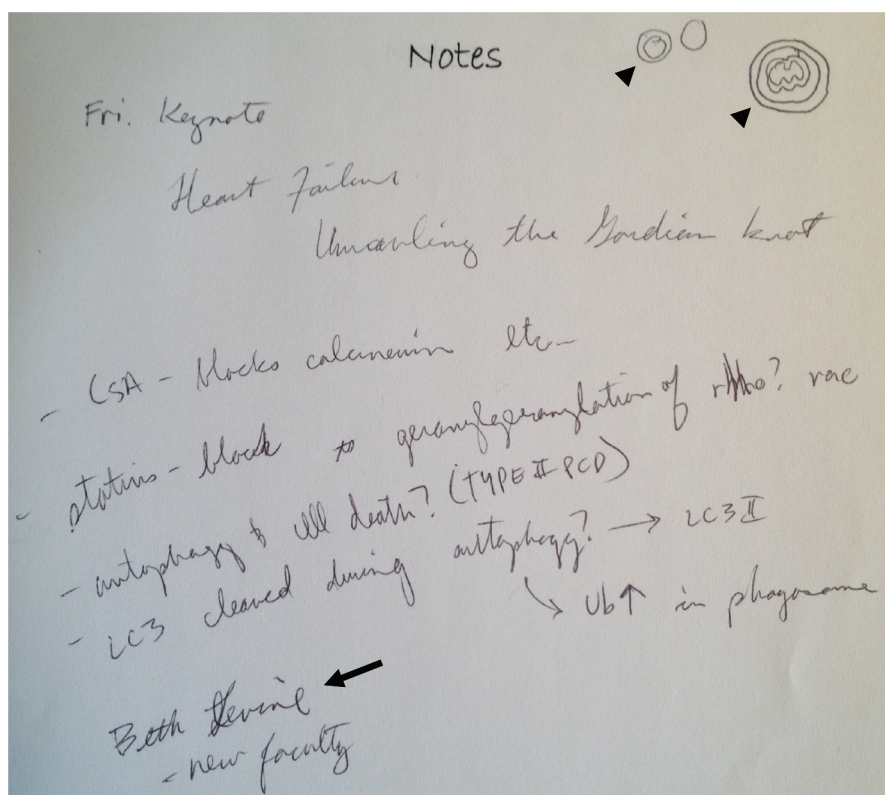 Notes
Fri. Keynote
Heart Failure
Unraveling the Gordian knot
- CSA - blocks calcineurin etc-
- statins - block geranylgeranylation of rho? rac
- autophagy & cell death? (TYPE II PCD)
- LC3 cleaved during autophagy? → LC3 II
↘ Ub↑ in phagosome
Beth Levine
- new faculty